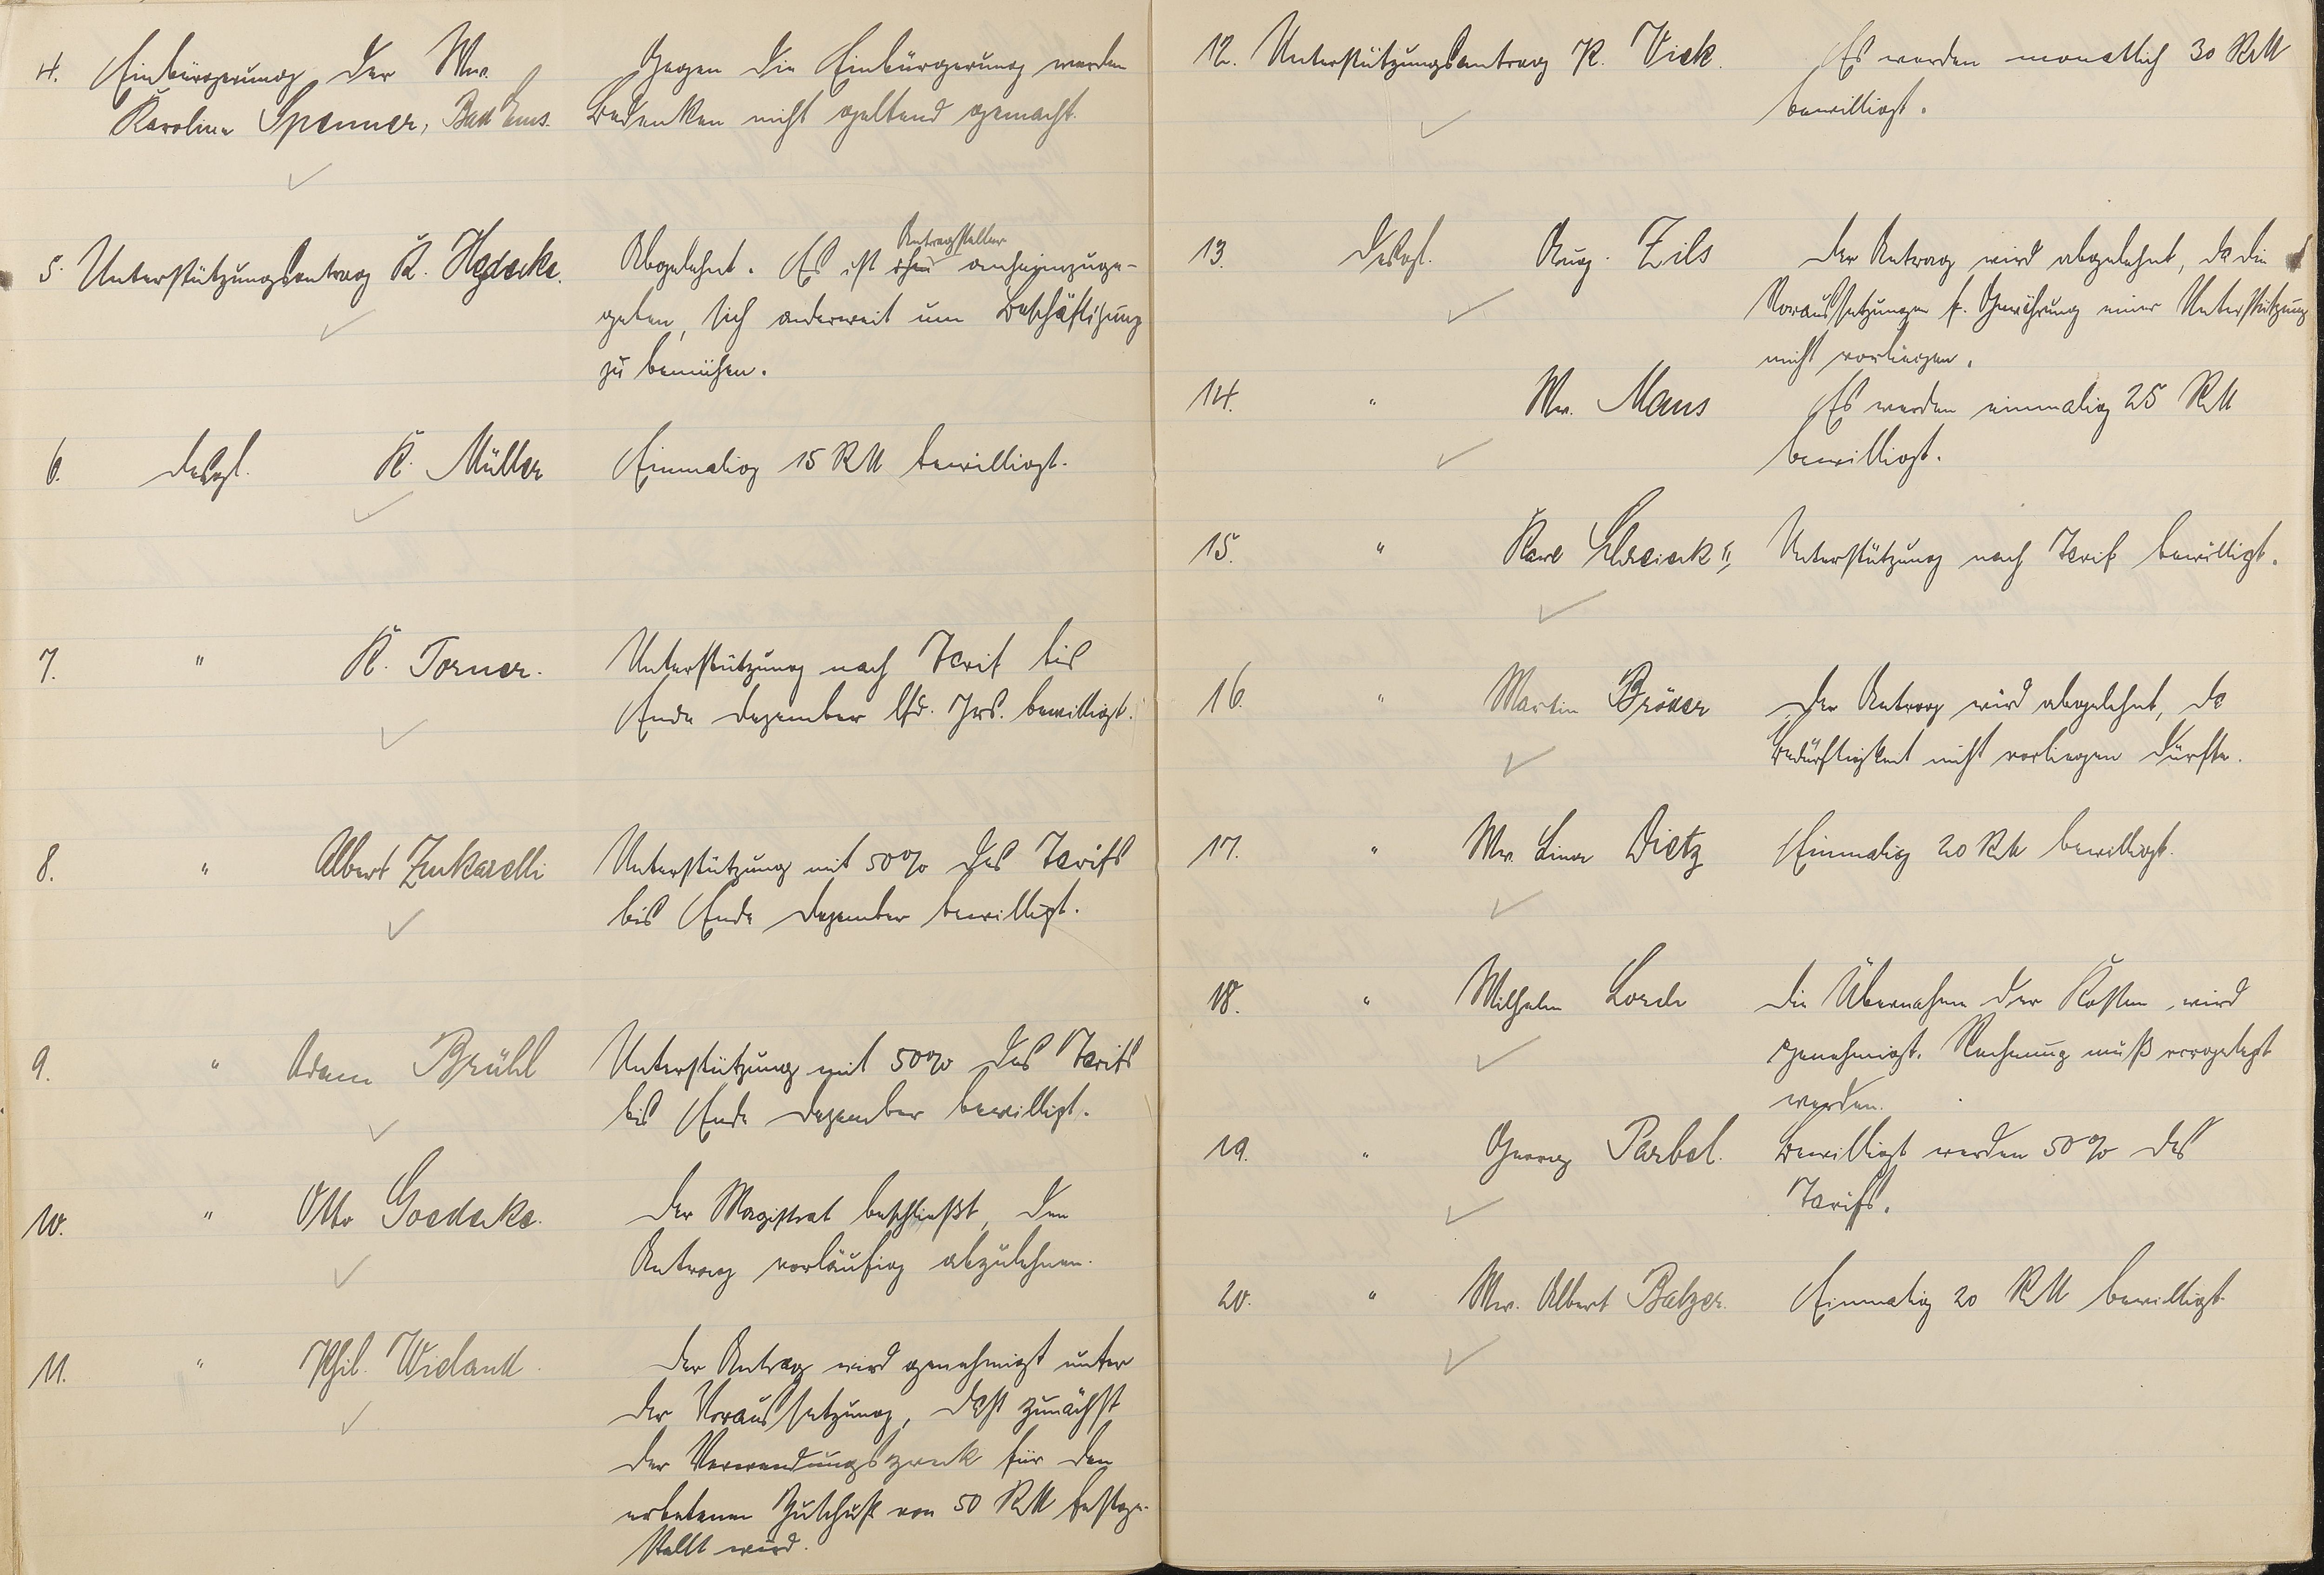 4. Einbürgerung der Ww.
Karoline Spenner, Bad Ems.
Gegen die Einbürgerung werden
Bedenken nicht geltend gemacht.
5. Unterstützungsantrag K. Hedecke.
Abgelehnt. Es ist Antragsteller anheimzuge-
geben, sich anderweit um Beschäftigung
zu bemühen.
6. desgl. K. Müller
Einmalig 15 RM bewilligt.
7. " K. Torner.
Unterstützung nach Tarif bis
Ende Dezember lfd. Jrs. bewilligt.
8. " Albert Zuckarelli
Unterstützung mit 50% des Tarifs
bis Ende Dezember bewilligt.
9. " Adam Brühl
Unterstützung mit 50% des Tarifs
bis Ende Dezember bewilligt.
10. " Otto Goedecke.
Der Magistrat beschließt, den
Antrag vorläufig abzulehnen.
11. " Phil. Wieland.
Der Antrag wird genehmigt unter
der Voraussetzung, daß zunächst
der Verwendungszweck für den
erbetenen Zuschuß von 50 RM festge-
stellt wird.
12. Unterstützungsantrag K. Vick.
Es werden monatlich 30 RM
bewilligt.
13. desgl. Aug. Zils
Der Antrag wird abgelehnt, da die
Voraussetzungen f. Gewährung einer Unterstützung
nicht vorliegen.
14. " Ww. Maus
Es werden einmalig 25 RM
bewilligt.
15. " Karl II,
Unterstützung nach Tarif bewilligt.
16. " Martin Bröder
Der Antrag wird abgelehnt, da
Bedürftigkeit nicht vorliegen dürfte.
17. " Ww. Lina Dietz
Einmalig 20 RM bewilligt.
18. " Wilhelm Lorch
Die Übernahme der Kosten wird
genehmigt. Rechnung muß vorgelegt
werden.
19. " Georg Parbel.
Bewilligt werden 50% des
Tarifs.
20. " Ww. Albert Balzer.
Einmalig 20 RM bewilligt